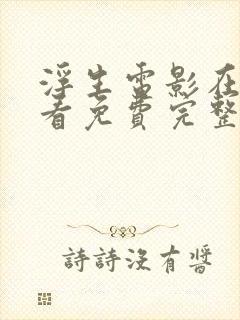 浮生雷影在
看免费完整
詩詩沒有醬